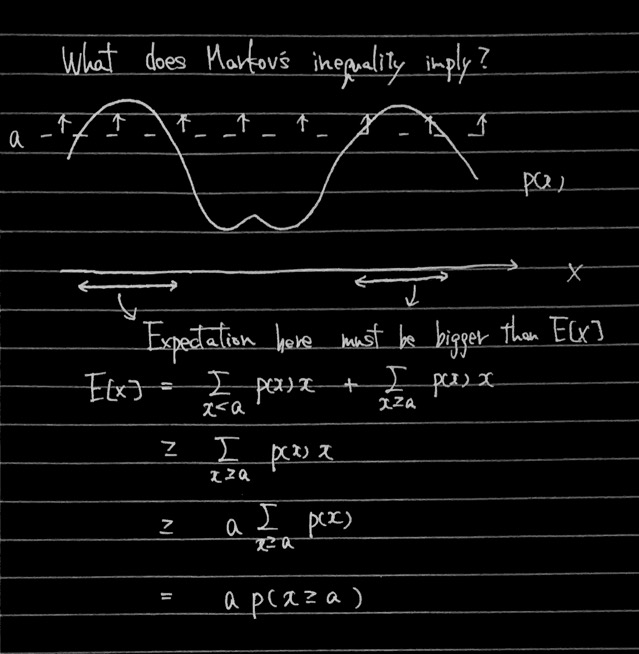 What does Markov's inequality imply?
a
p(x)
x
Expectation here must be bigger than E[x]
E[x] = Σ x<a p(x) x + Σ x≥a p(x) x
≥ Σ x≥a p(x) x
≥ a Σ x≥a p(x)
= a p(x ≥ a)